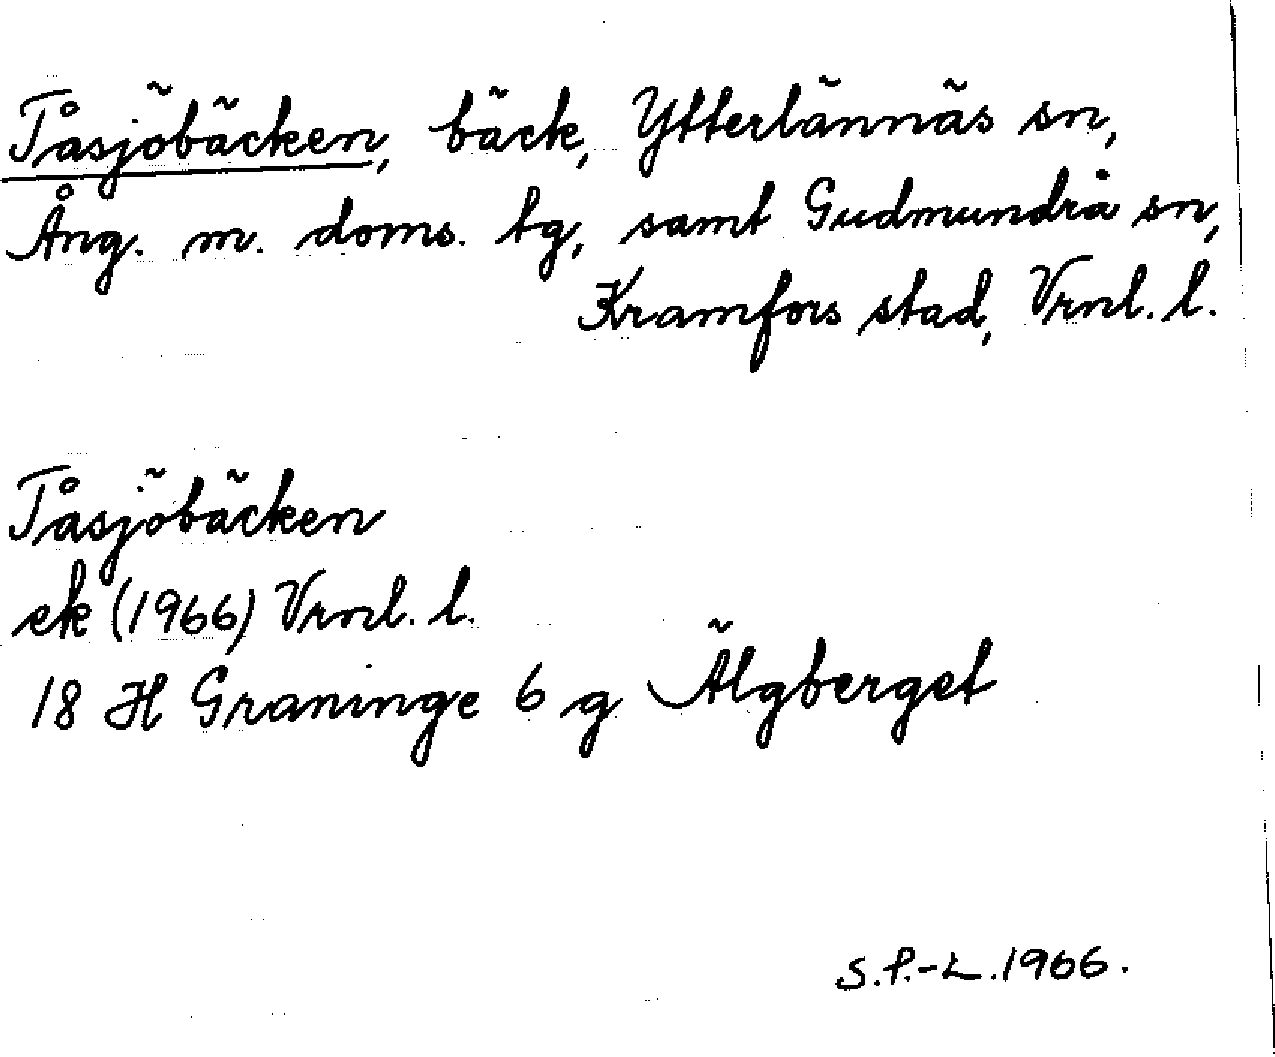 Tåsjöbäcken, bäck, Ytterlännäs sn,
Ång. m. doms. tg, samt Gudmundrå sn,
Kramfors stad, Vrnl. l.
Tåsjöbäcken
ek (1966) Vrnl. l.
18 H Graninge 6 g Älgberget
S.P.-L. 1966.